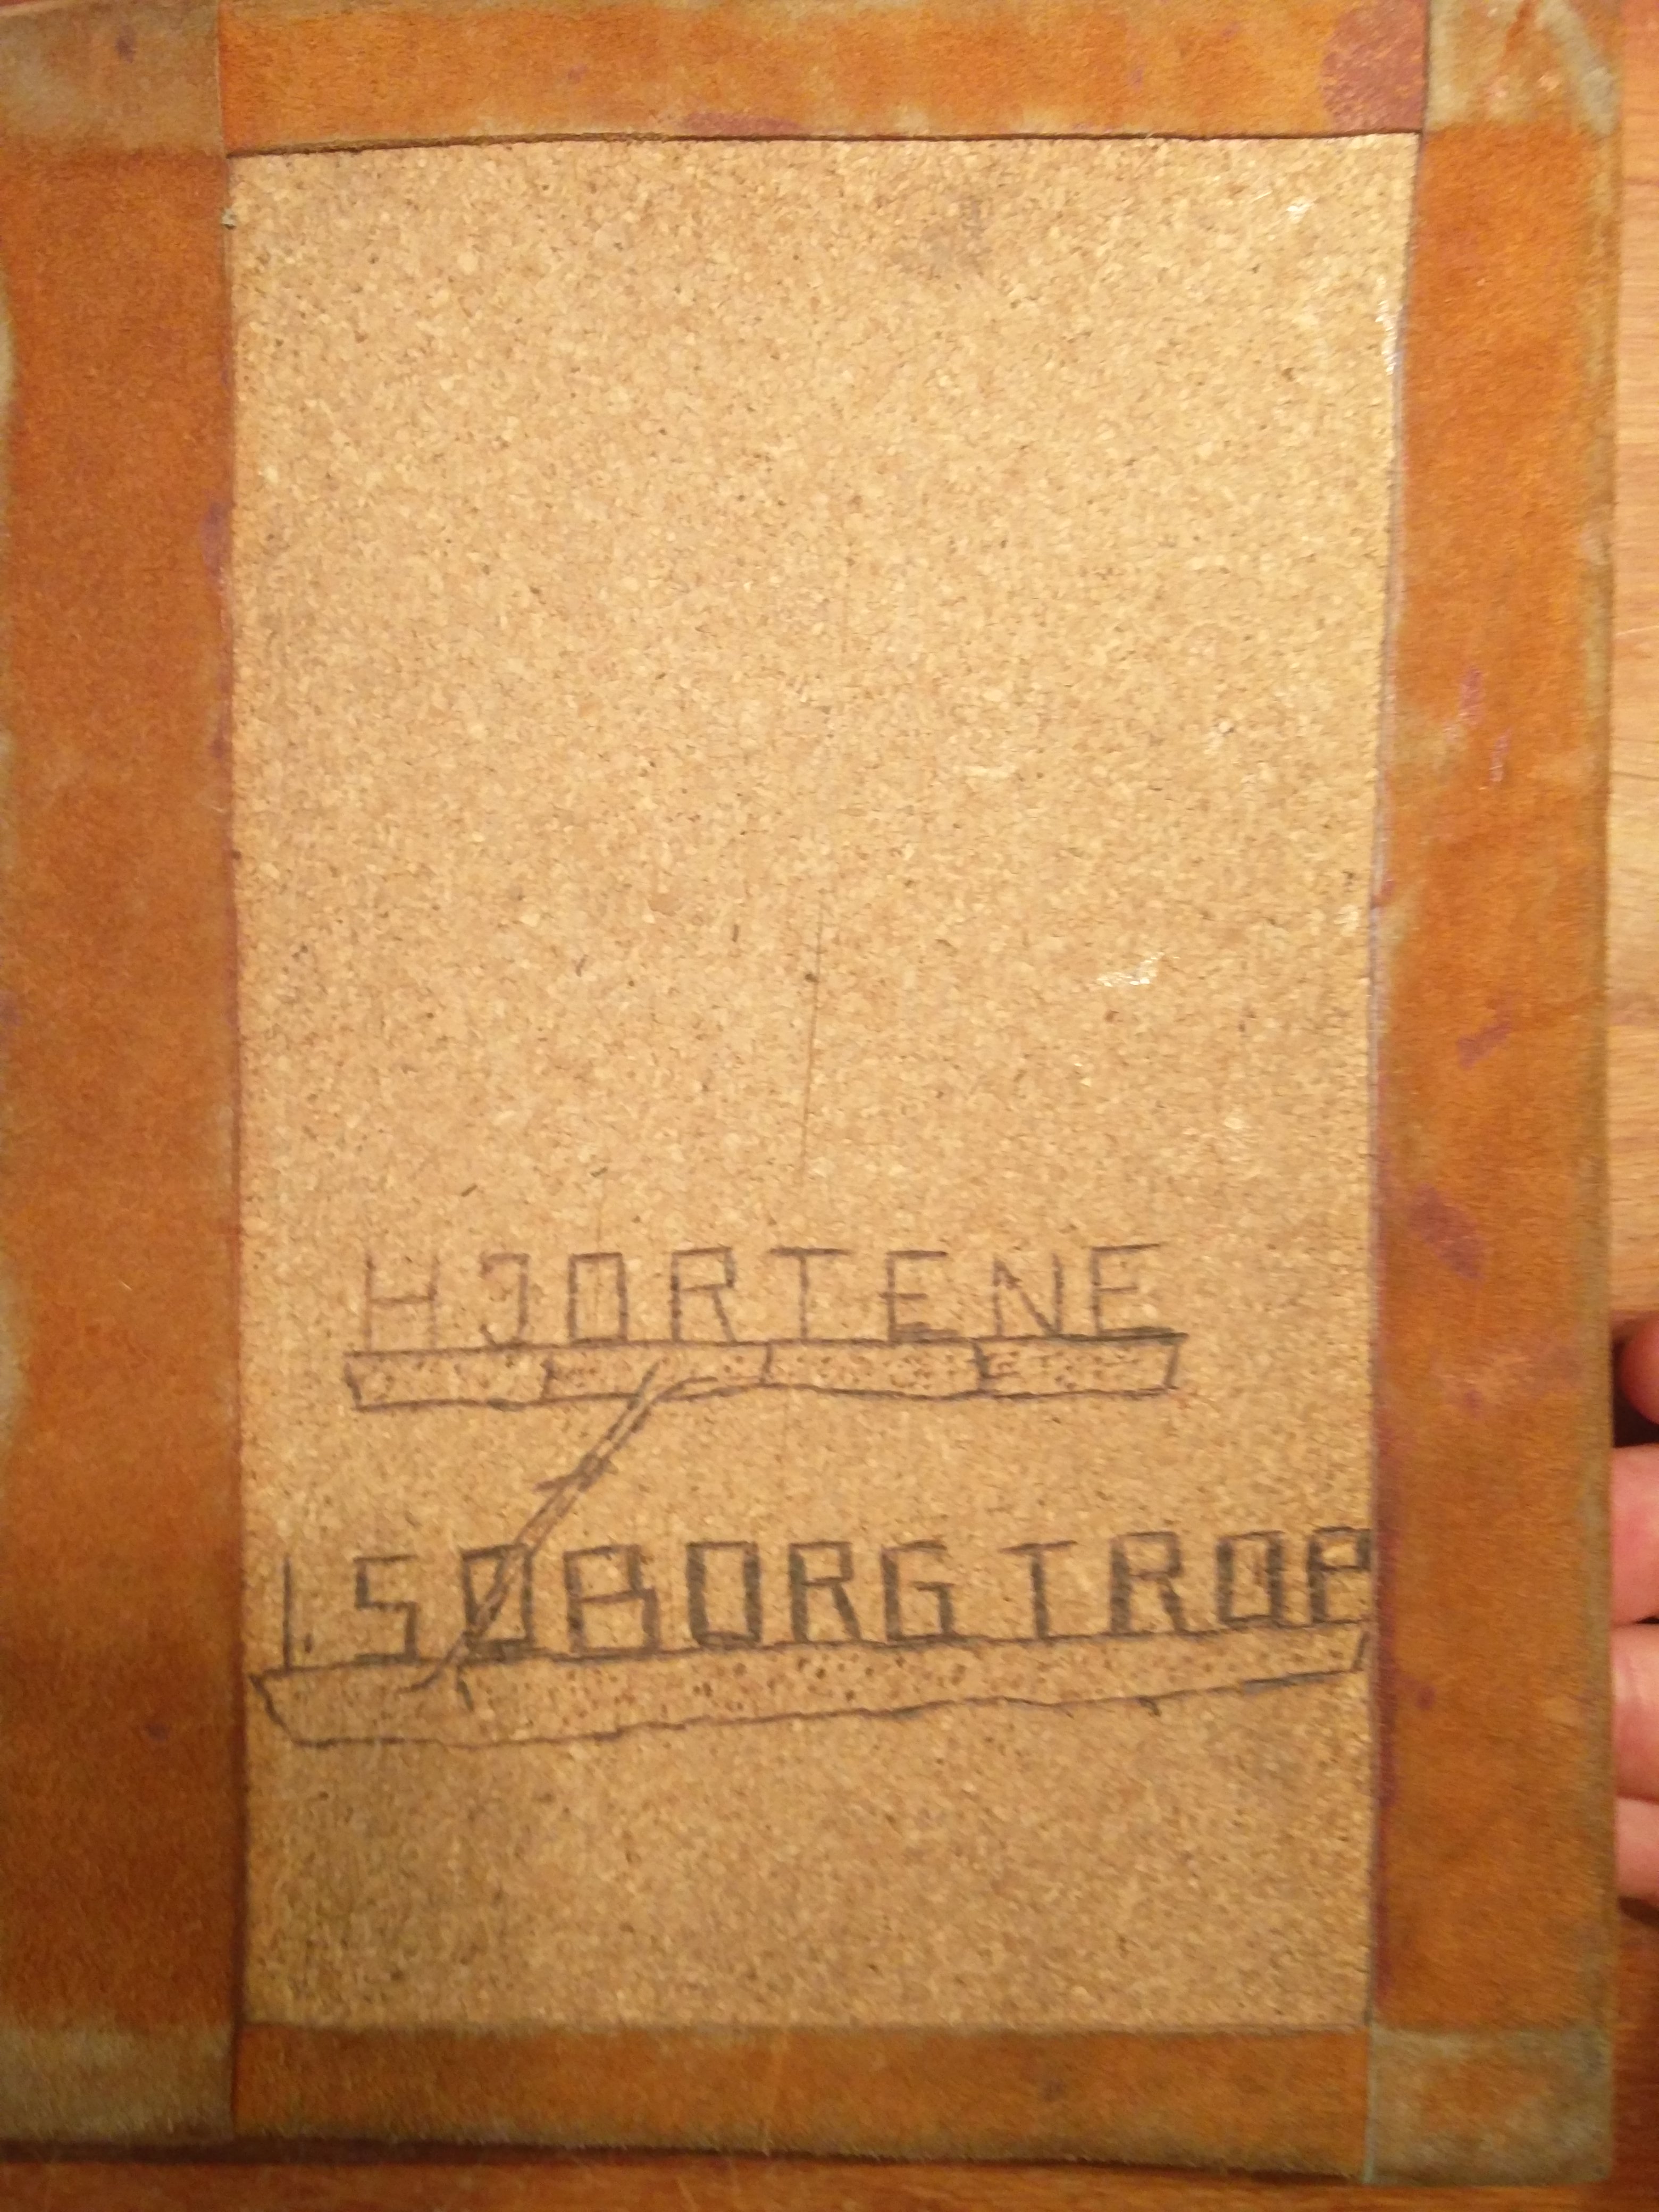 HJORTENE
1. SØBORG TROP